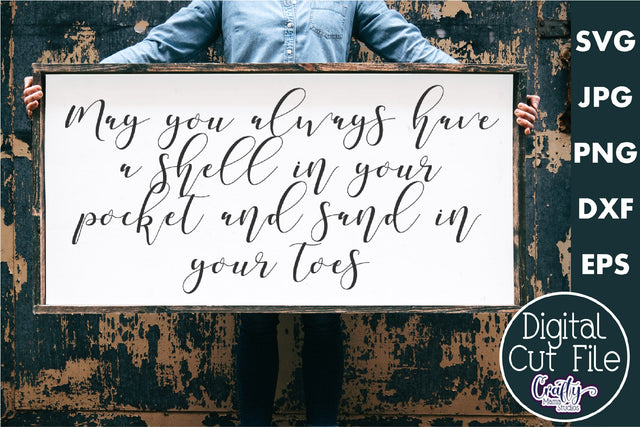 May you always have
a shell in your
pocket and sand in
your toes
SVG
JPG
PNG
DXF
EPS
Digital
Cut File
Crafty
Mama
Studios